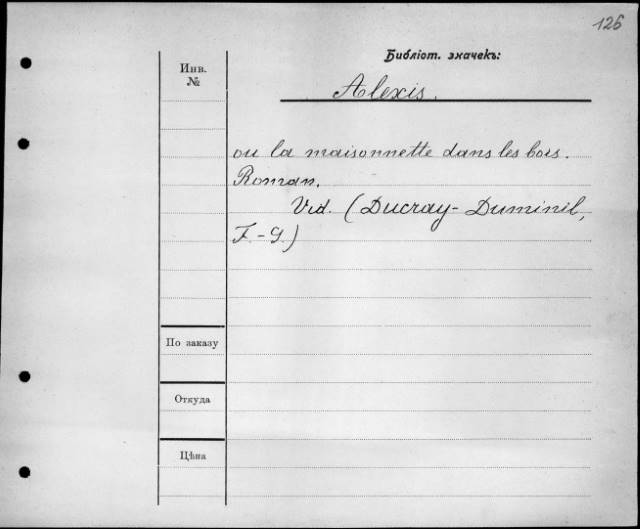 126
Библіот. значекъ:
Инв.
№
Alexis.
ou la maisonnette dans les bois.
Roman.
Vid. (Ducray-Duminil,
F.-G.)
По заказу
Откуда
Цѣна